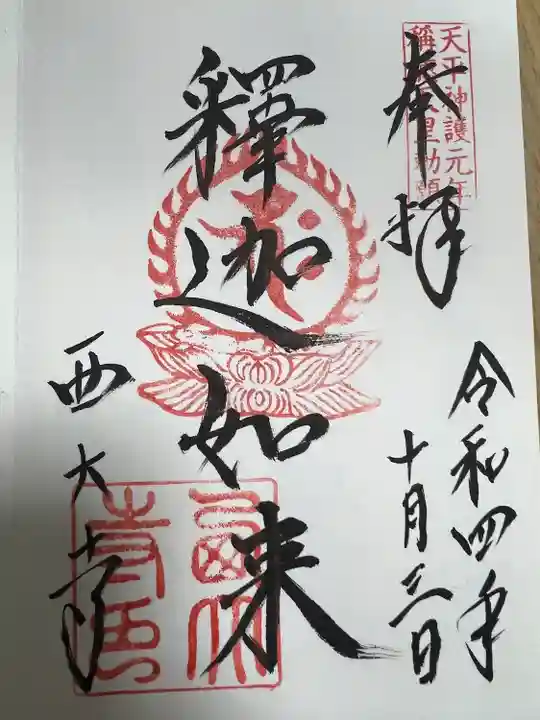 奉拝
天平神護元年
稱徳天皇勅願
令和四年
十月三日
釋迦如来
西大寺